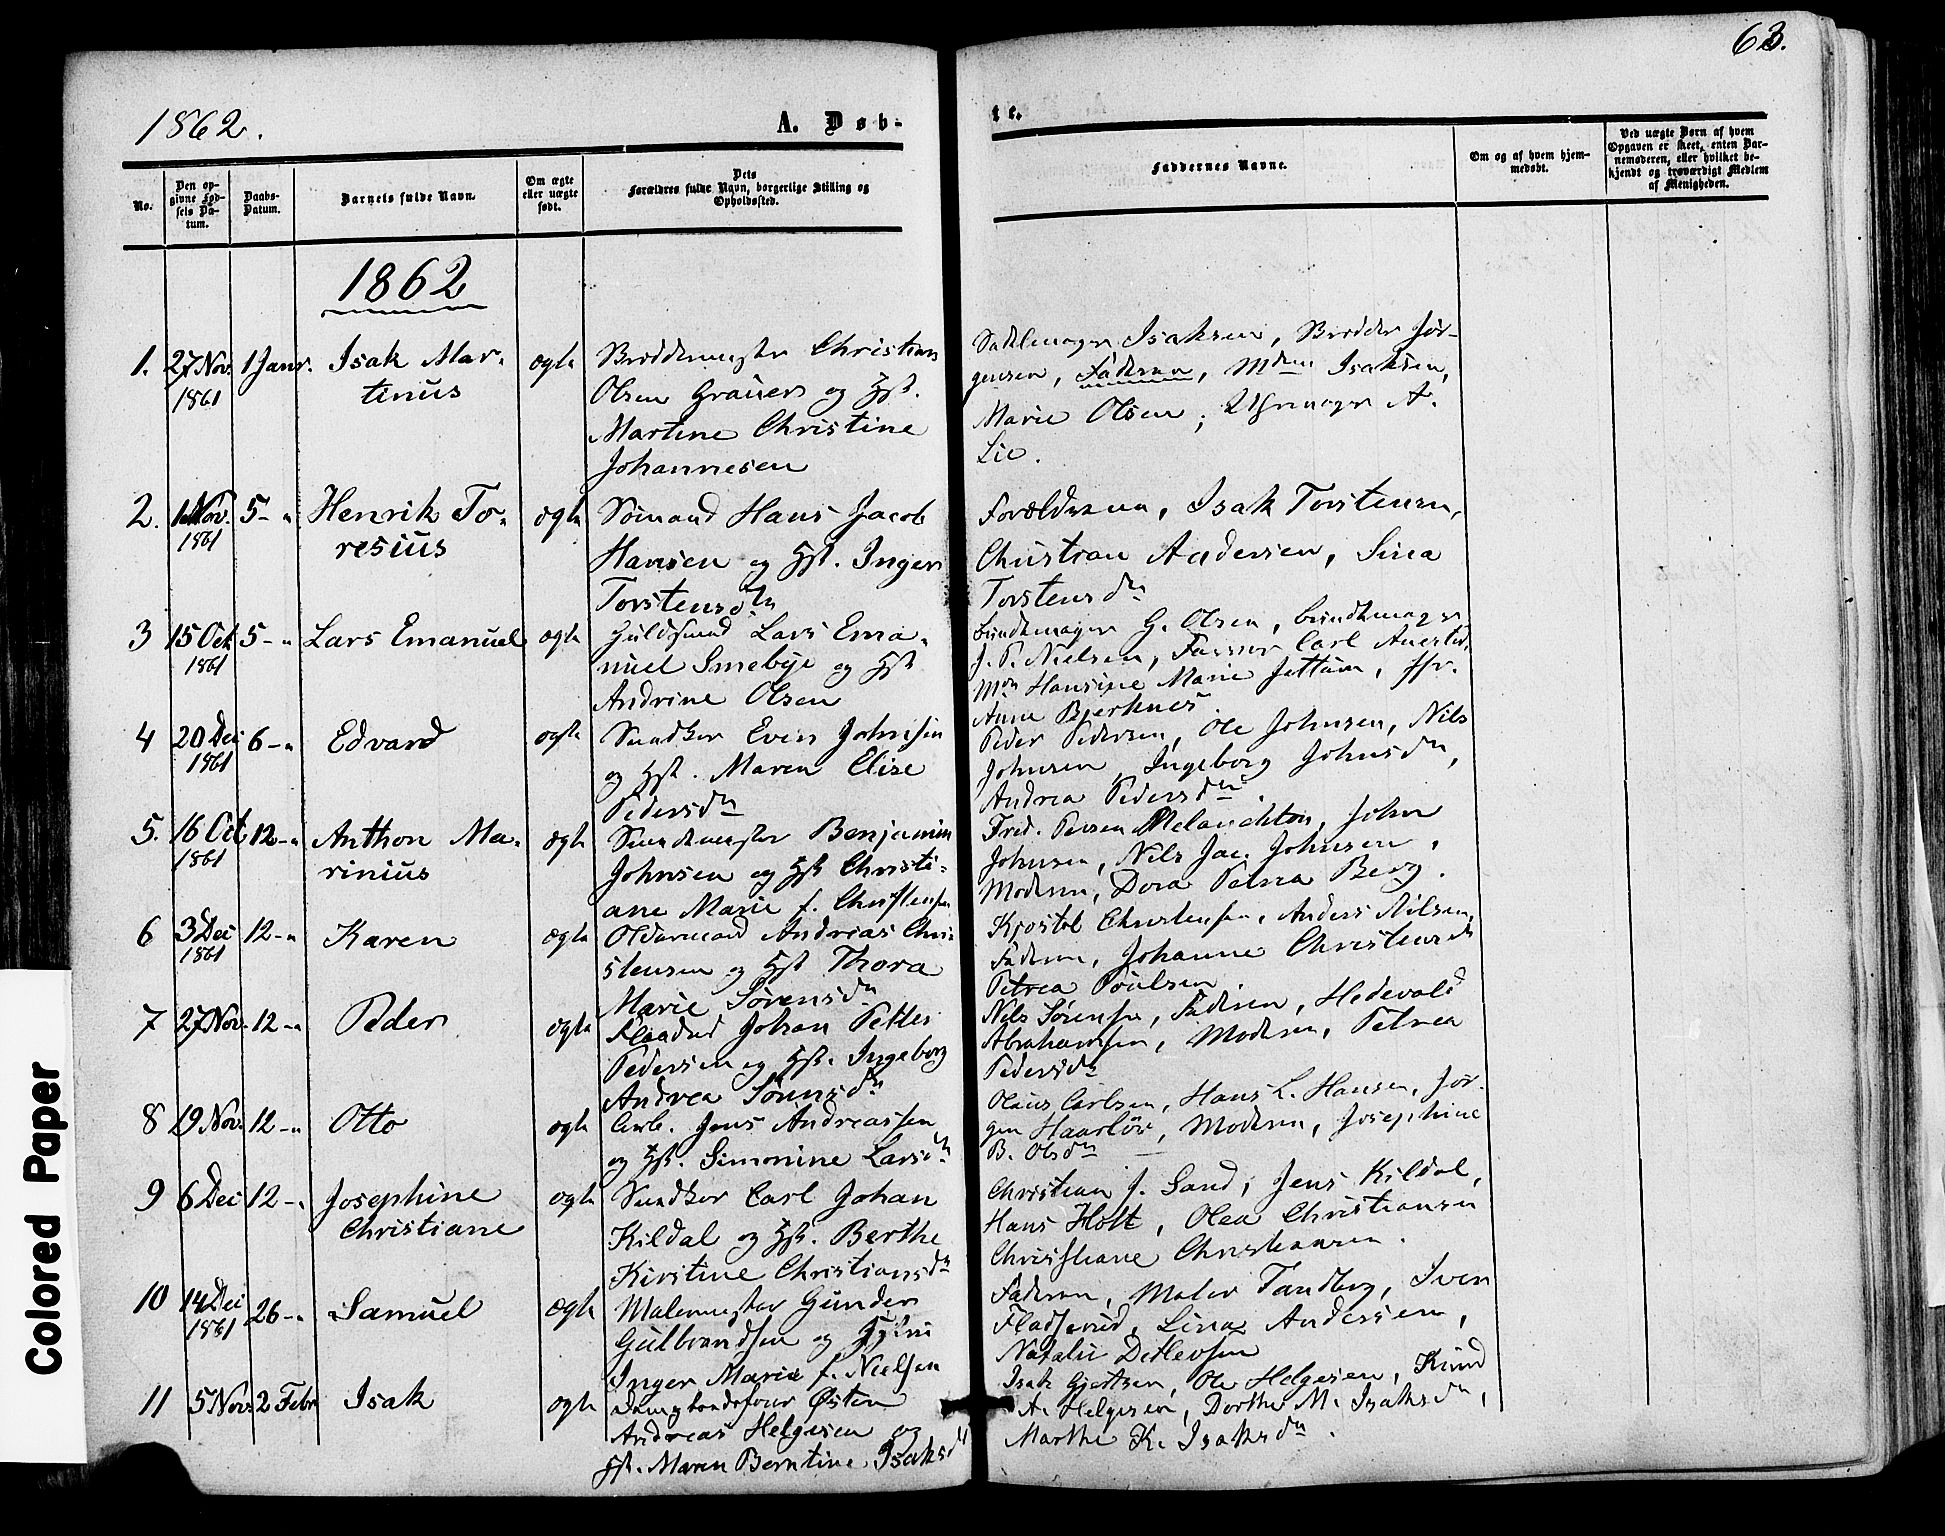 63.
1862.
A. Døb-
te.
No.
Den op-
givne Fød-
sels Da-
tum.
Daabs-
Datum.
Barnets fulde Navn.
Om ægte
eller uægte
født.
Dets
Forældres fulde Navn, borgerlige Stilling og
Opholdssted.
Faddernes Navne.
Om og af hvem hjem-
medøbt.
Ved uægte Børn af hvem
Opgaven er skeet, enten Bar-
nemoderen, eller hvilket be-
kjendt og troværdigt Medlem
af Menigheden.
1862
1. 27 Nov. 1861 1 Janr. Isak Mar-
tinus
ægte
Christian
Olsen Grauer og Hst.
Martine Christine
Johannesen
Sadelmager Isaksen, Brødder Jør-
gensen, Faderen, Mdm Isaksen,
Marie Olsen, Uhrmager A.
Lie.
2. 1 Nov. 1861 5 - " Henrik To-
resius
ægte
Sømand Hans Jacob
Hansen og Hst. Inger
Torstensdtr
Forældrene, Isak Torstensen,
Christian Andersen, Sina
Torstensdtr
3 15 Oct 1861 5 - " Lars Emanuel
ægte
Guldsmed Lars Ema-
nuel Smebye og Hst
Andrine Olsen
Bundtmager G. Olsen, bundtmager
J. P. Nielsen, Farver Carl
Mdm Hansine Marie Jettum, Jfr.
Anne Bjerknes.
4 20 Dec 1861 6 - " Edvard
ægte
Even Johnsen
og Hst. Maren Elise
Pedersdtr
Peder Pedersen, Ole Johnsen, Nils
Johnsen, Ingeborg Johnsdtr,
Andrea Pedersdtr.
5. 16 Oct 1861 12 - " Anthon Ma-
rinius
ægte
Benjamin
Johnsen og Hst Christi-
ane Marie f. Christensen
Fred. Melanchton, John
Johnsen, Nils Jac. Johnsen,
Moderen, Dora Petrea Berg.
6 3 Dec 1861 12 - " Karen
ægte
Oldermand Andreas Chri-
stensen og Hst Thora
Marie Sørensdtr
Kjostel Christensen, Anders Nilsen,
Faderen, Johanne Christensdtr
Petrea Poulsen.
7 27 Nov. 12 - " Peder
ægte
Johan Petter
Pedersen og Hst. Ingeborg
Andrea Sørensdtr
Nils Sørensen, Faderen, Hedevald
Abrahamsen, Moderen, Petrea
Pedersdtr
8 19 Nov. 12 - " Otto
ægte
Arb. Jens Andreassen
og Hst. Simonine Larsdtr
Olaus Carlsen, Hans L. Hansen, Jør-
gen Haarløv, Moderen, Josephine
B. Olsdtr
9 6 Dec 12 - " Josephine
Christiane
ægte
Carl Johan
Kildal og Hst. Berthe
Kirstine Christiansdtr
Christian J. Sand, Jens Kildal,
Hans Holt, Olea Christiansen
Christiane Christiansen.
10 14 Dec 1861 26 - " Samuel
ægte
Malermester Gunder
Gulbrandsen og Hst
Inger Marie f. Nielsen
Faderen, Maler Tandberg, Iver
Lina Andersen,
Natalie Detlevsen
11 5 Nov 2 Febr Isak
ægte
Østen
Andreas Helgesen og
Hst. Maren Berntine Isaksdtr
Isak Gjertsen, Ole Helgesen, Knud
A. Helgesen, Dorthe M. Isaksdtr,
Marthe K. Isaksdtr.
Colored Paper